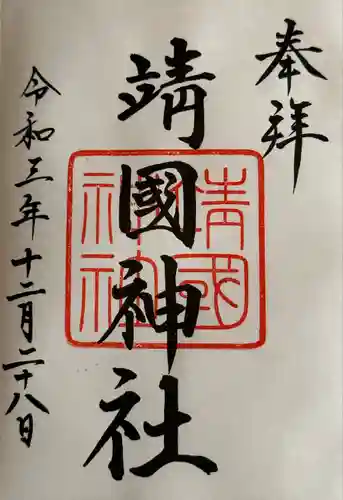 奉拝
靖國神社
靖國
神社
令和三年十二月二十八日